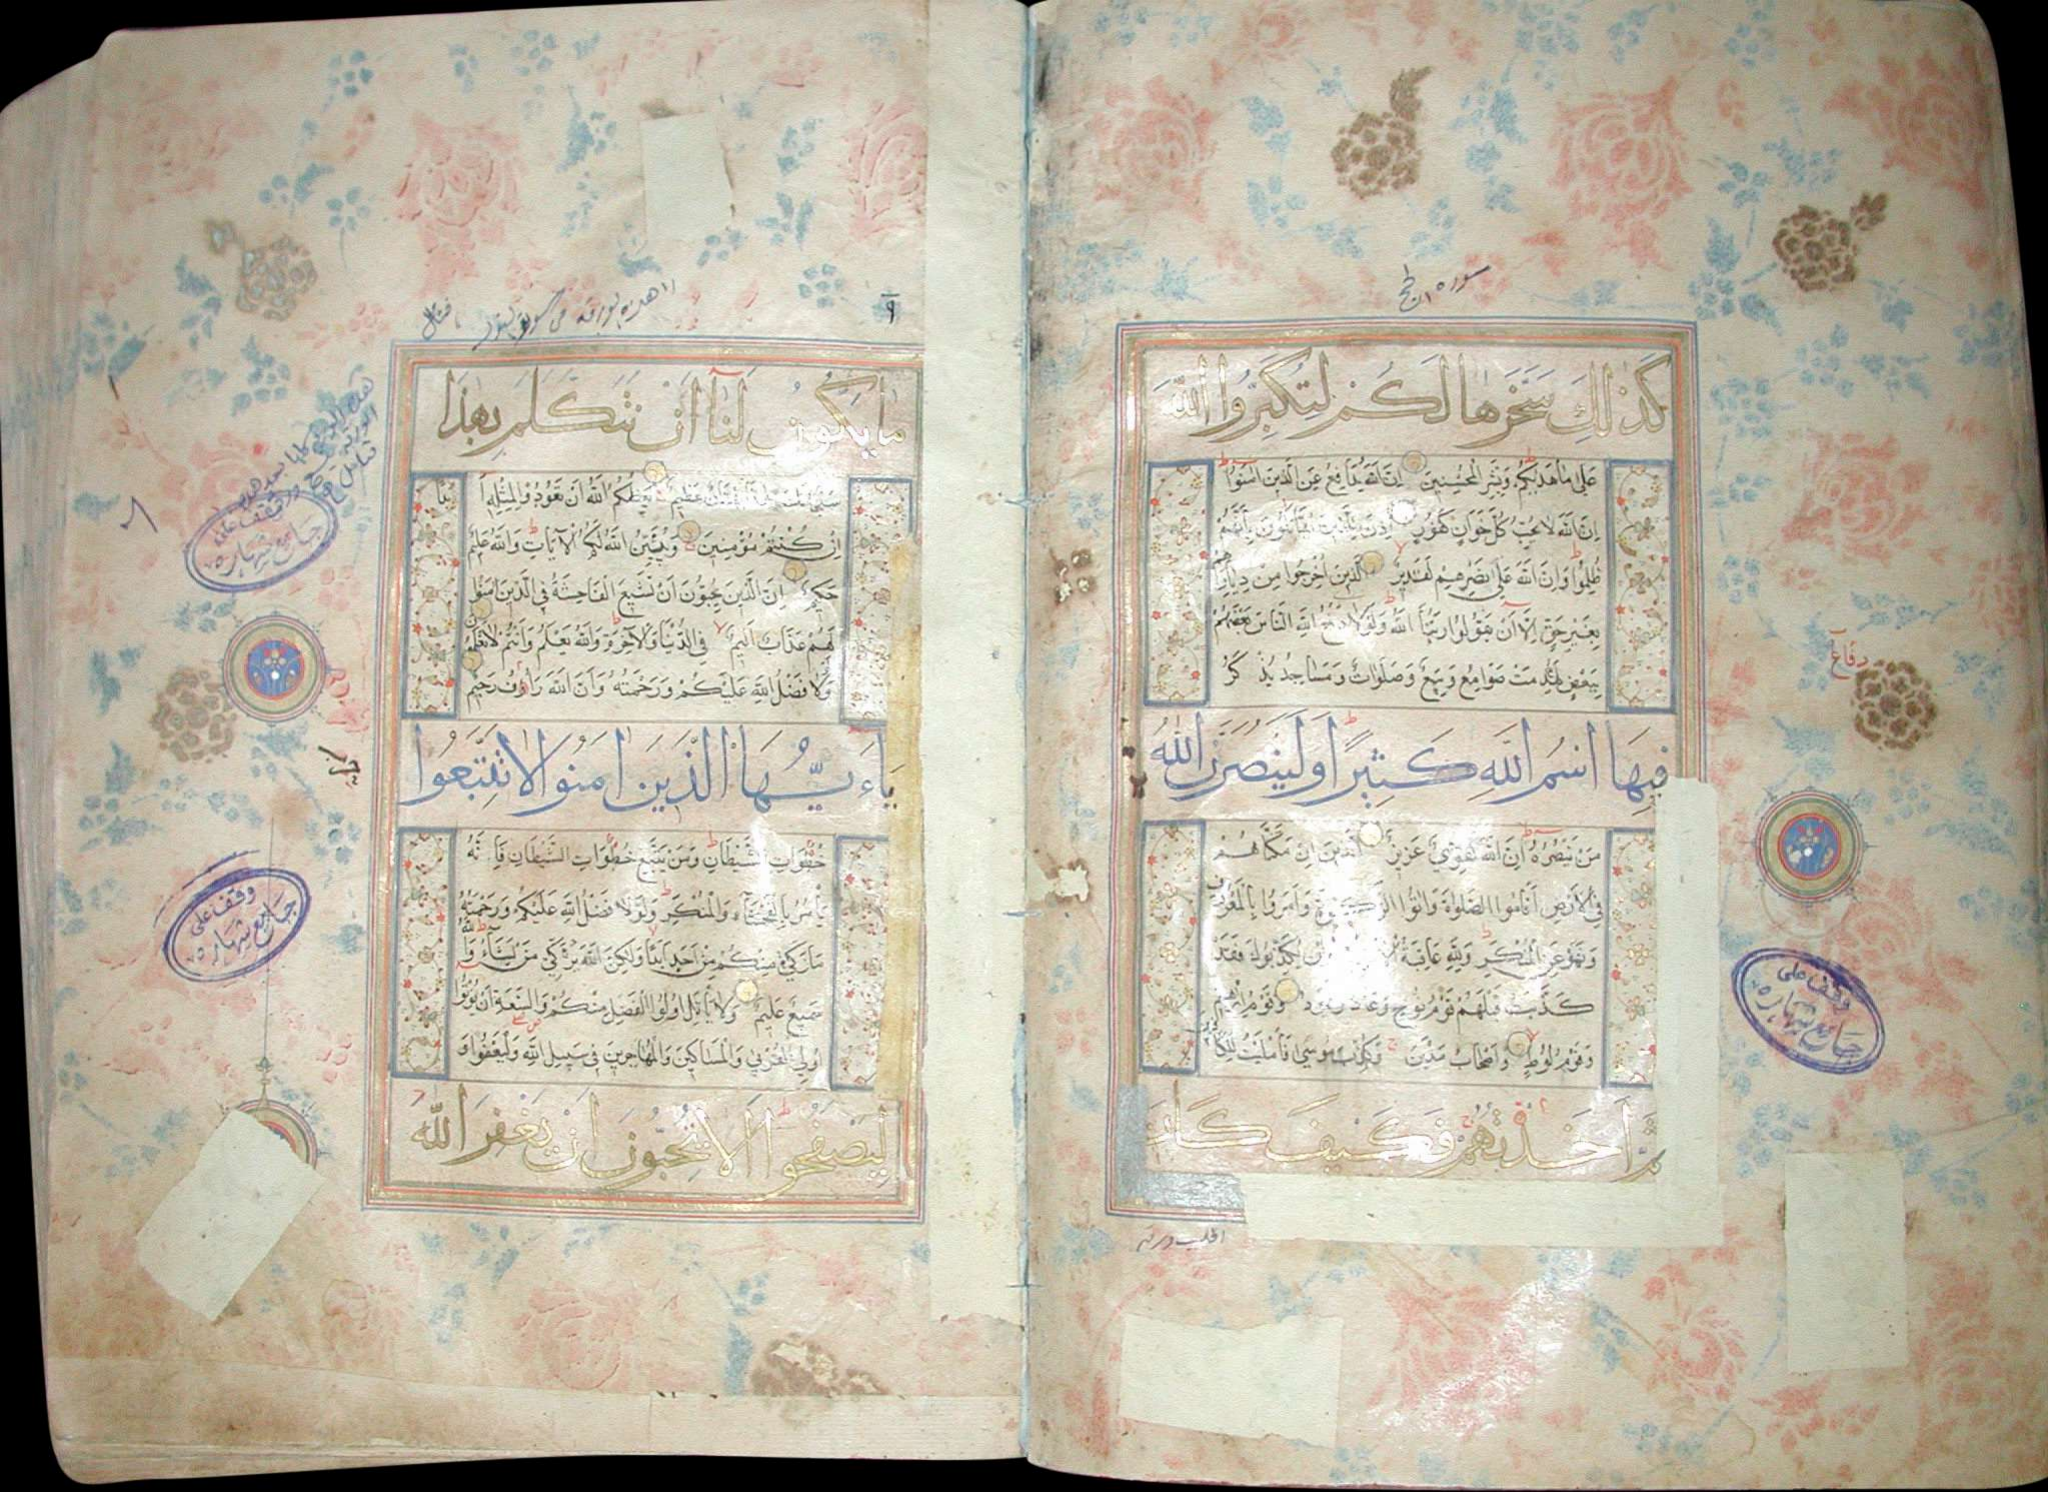 سورة الحج
كذلك سخرها لكم لتكبروا الله
على ما هديكم وبشر المحسنين ان الله يدافع عن الذين امنوا
ان الله لا يحب كل خوان كفور اذن للذين يقاتلون بانهم
ظلموا وان الله على نصرهم لقدير الذين اخرجوا من ديارهم
بغير حق الا ان يقولوا ربنا الله ولولا دفع الله الناس بعضهم
ببعض لهدمت صوامع وبيع وصلوات ومساجد يذكر
فيها اسم الله كثيرا ولينصرن الله
من ينصره ان الله لقوي عزيز الذين ان مكناهم
في الارض اقاموا الصلوة واتوا الزكوة وامروا بالمعروف
ونهوا عن المنكر ولله عاقبة الامور وان يكذبوك فقد
كذبت قبلهم قوم نوح وعاد وثمود وقوم ابرهيم
وقوم لوط واصحاب مدين وكذب موسى فامليت للكافرين
ثم اخذتهم فكيف كان
دفاع
وقف على
جامع شهاره
اقلب ورقه
٩
ما يكون لنا ان نتكلم بهذا
سبحانك هذا بهتان عظيم يعظكم الله ان تعودوا لمثله ابدا
ان كنتم مؤمنين ويبين الله لكم الايات والله عليم
حكيم ان الذين يحبون ان تشيع الفاحشة في الذين امنوا
لهم عذاب اليم في الدنيا والاخرة والله يعلم وانتم لا تعلمون
ولولا فضل الله عليكم ورحمته وان الله رؤف رحيم
ياءيها الذين امنوا لا تتبعوا
خطوات الشيطان ومن يتبع خطوات الشيطان فانه
يأمر بالفحشاء والمنكر ولولا فضل الله عليكم ورحمته
ما زكى منكم من احد ابدا ولكن الله يزكي من يشاء والله
سميع عليم ولا يأتل اولوا الفضل منكم والسعة ان يؤتوا
اولي القربى والمساكين والمهاجرين في سبيل الله وليعفوا و
ليصفحوا الا تحبون ان يغفر الله
وقف على
جامع شهاره
حزب
وقف على
جامع شهاره